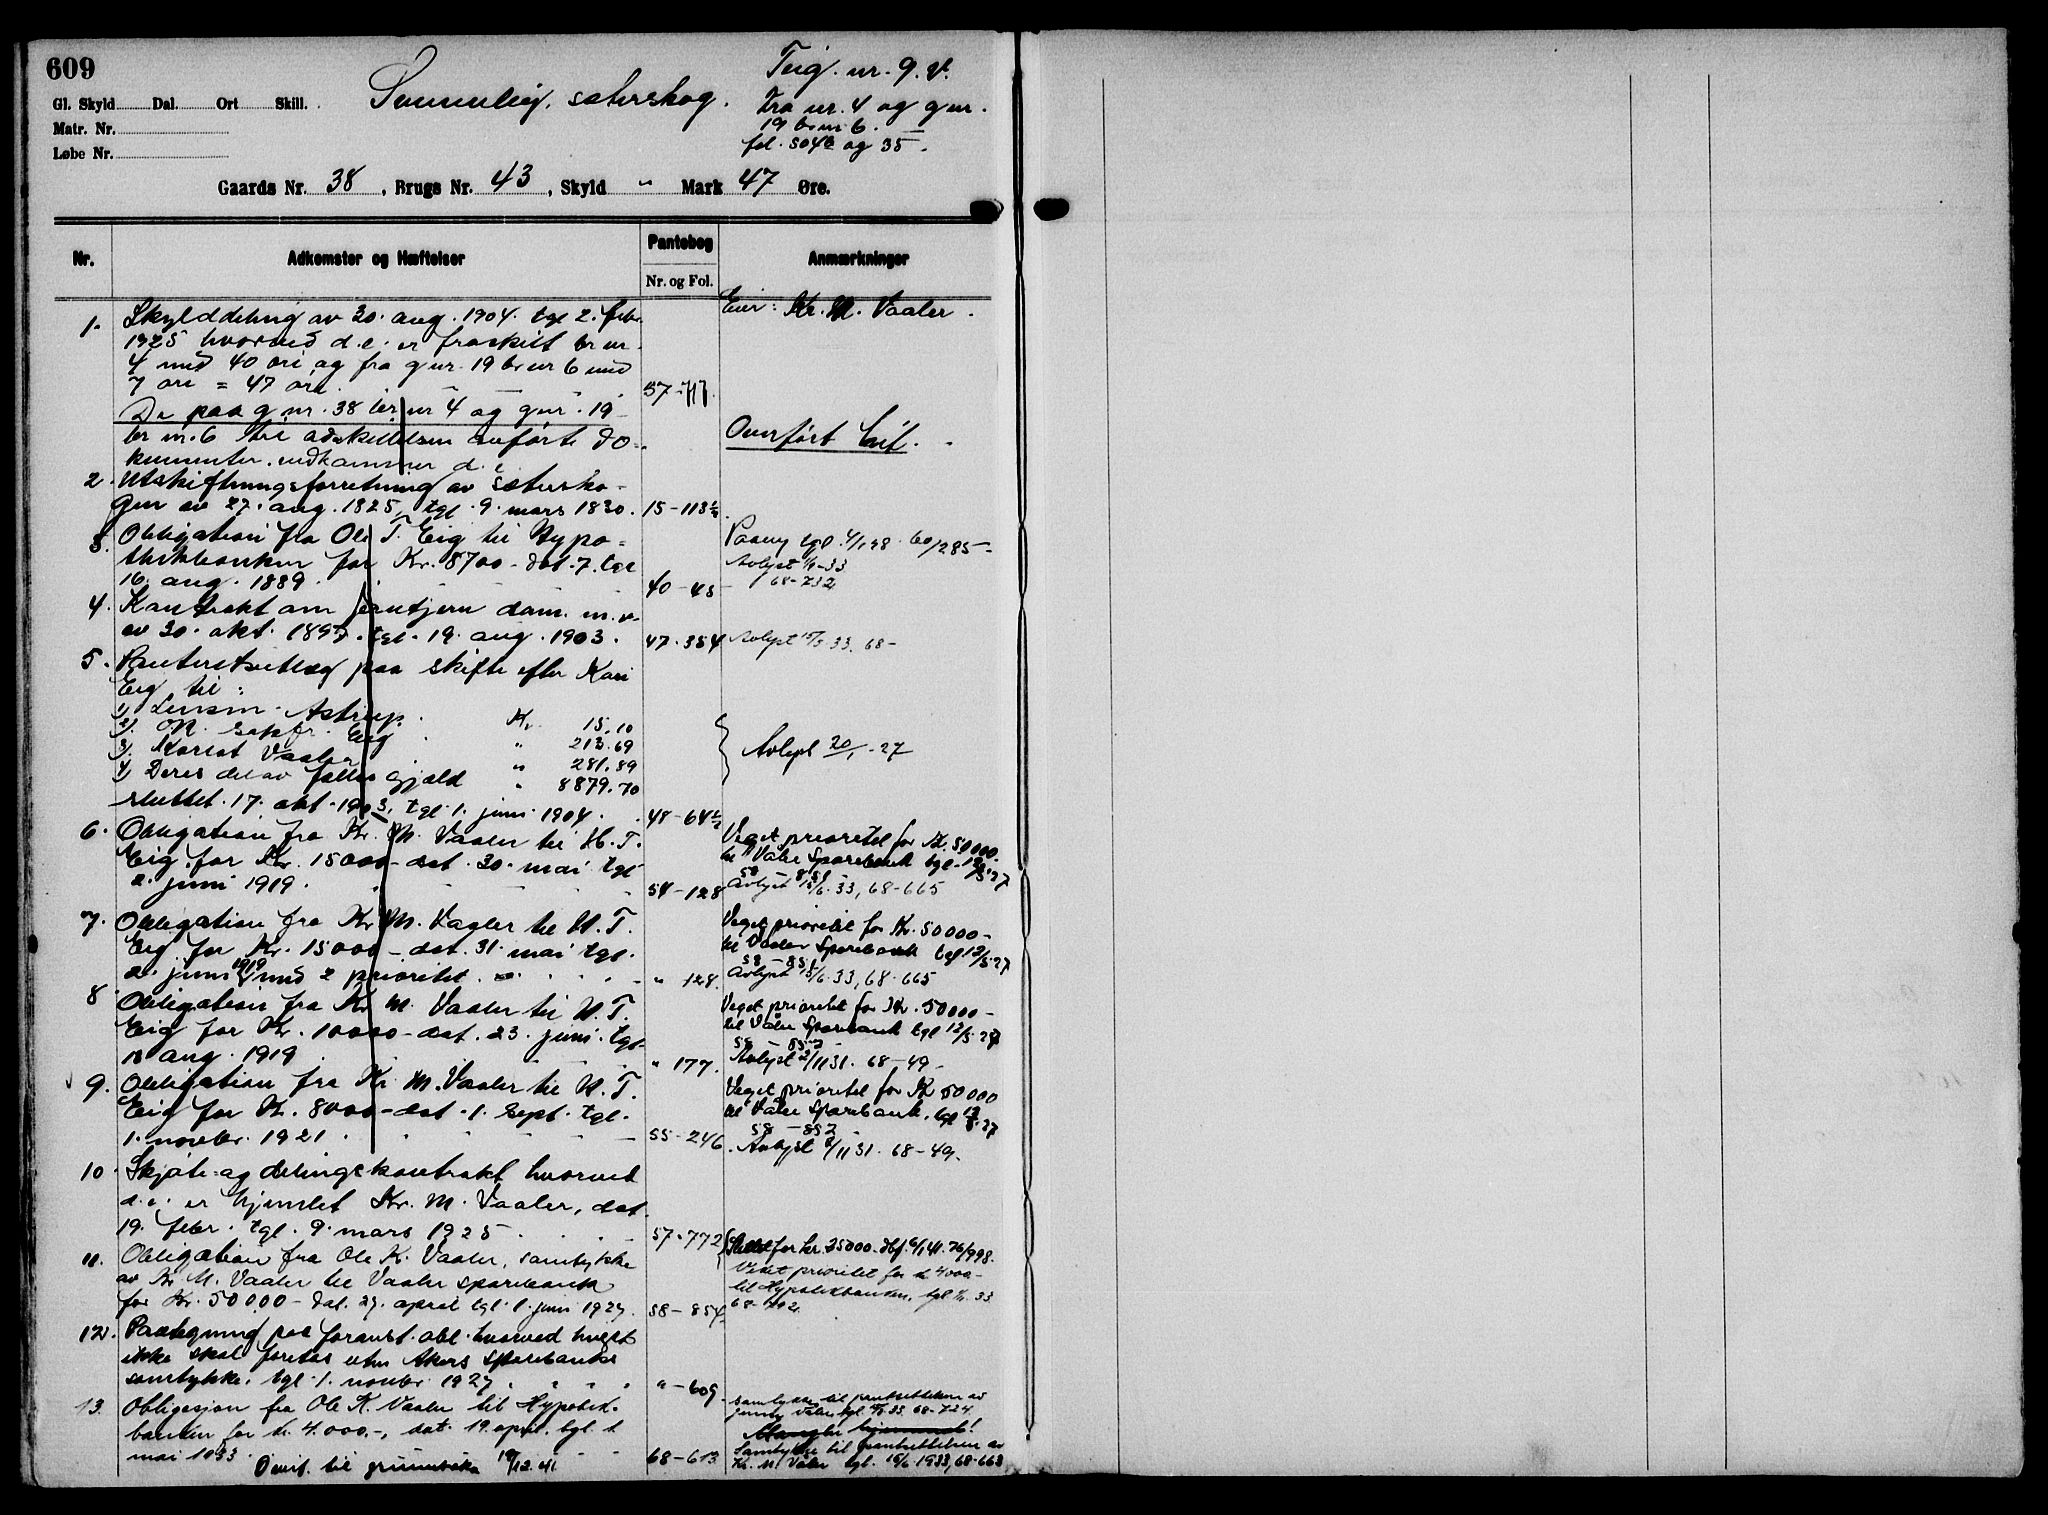 609
Teig. nr. 9. V.
Gl. Skyld Dal. Ort Skill. sæterskog.
Fra nr. 4 og g nr.
Matr. Nr.
19 br nr 6.
Løbe Nr.
fol. 504b og 35.
Gaards Nr. 38, Brugs Nr. 43, Skyld " Mark 47 Øre.
Nr. Adkomster og Hæftelser Pantebog Anmærkninger
Nr. og Fol.
1. Skylddeling av 30. aug. 1904. tgl 2. febr. Eier: Kr. M. Vaaler.
1925 hvorved d. e. er fraskilt br nr.
4 med 40 øre og fra g nr. 19 br nr 6 med
7 øre = 47 øre.
57-717.
De paa g nr. 38 br nr 4 og g nr. 19
br nr. 6 til adskillelsen anførte do-
Overført hit.
kumenter vedkommer d. e.
2. Utskiftningsforretning av sætersko-
gen av 27. aug. 1825, tgl. 9. mars 1830. 15-113½.
3. Obligation fra Ole T. Eig til Hypo-
thekbanken for Kr. 8700- dat. 7. tgl
16. aug. 1889. 40-45
60/285-
68-732
4. Kontrakt om dam. m. v.
av 30. okt. 1897. tgl. 19. aug. 1903. 47-354 Avlyst 15/5 33. 68-
5. Panteretsutlæg paa skifte efter Kari
Eig til:
1) Astrup. Kr. 15.10
2) Eig " 213.69
3) Vaaler " 281.89
4) Deres del av fælles gjæld " 8879.70
Avlyst 20/1-27
sluttet. 17. okt. 1903, tgl. 1. juni 1904. 48-64½
6. Obligation fra Kr. M. Vaaler til H. T.
Eig for Kr. 15000- dat. 30. mai tgl
2. juni 1919. 54-128
Veget prioritet for Kr. 50000-
til Våler Sparebank tgl. 12/5-27
58-851
Avlyst 15/6. 33, 68-665
7. Obligation fra Kr. M. Vaaler til H. T.
Eig for Kr. 15000- dat. 31. mai tgl.
2. juni 1919 med 2 prioritet. " 128.
Veget prioritet for Kr. 50000-
til Vaaler Sparebank tgl 12/5-27
58-851
Avlyst 15/6. 33, 68-665
8. Obligation fra Kr. M. Vaaler til H. T.
Eig for Kr. 10000- dat. 23. juni. tgl.
18 aug. 1919. " 177.
Veget prioritet for Kr. 50000-
til Våler Sparebank tgl 12/5-27
Avlyst 2/11 31. 68-49-
9. Obligation fra Kr. M. Vaaler til H. T.
Eig for Kr. 8000- dat. 1. sept. tgl.
1. novbr. 1921. 55-246
Veget prioritet for Kr 50000
til Våler Sparebank. tgl 12/5-27
58-852
Avlyst 2/11 31. 68-49.
10. Skjøte og delingskontrakt hvorved
d. e. er hjemlet Kr. M. Vaaler, dat.
19. febr. tgl. 9. mars 1925. 57-772
11. Obligation fra Ole K. Vaaler, samtykke
av Kr M. Vaaler til Vaaler sparebank
for Kr. 50000- dat. 27. april tgl. 1. juni 1927. 58-854
Slettet for kr. 25000. 76/998.
Veket prioritet for kr 4000-
til Hypotekbanken, tgl 33
12. Paategning paa foranst. obl. hvorved
ikke skal foretas uten Akers Sparebanks
samtykke. tgl. 1. novbr. 1927 " -609
13. Obligasjon fra Ole K. Vaaler til Hypotek-
banken for kr. 4.000.-, dat. 19. april. tgl. 1.
mai 1933. 68-613
Samtykke til pantsettelsen av
68-724
Mangler hjemmel!
Samtykke til pantsettelsen av
Kr. M. Våler tgl. 15/6 1933, 68-663
Overf. til grunnboka 19/12. 41